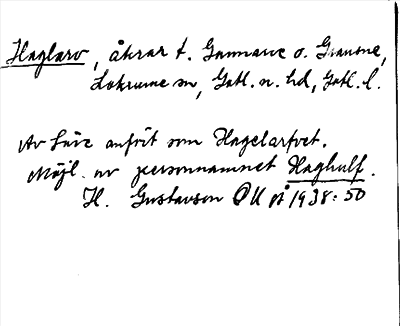 Haglarv, åkrar t. Gannarve o. Graune,
Lokrume sn, Gotl. n. hd, Gotl. l.
Av Säve anfört som Hagelarfvet.
Möjl. av personnamnet Haghulf.
H. Gustavson OU på 1938: 50